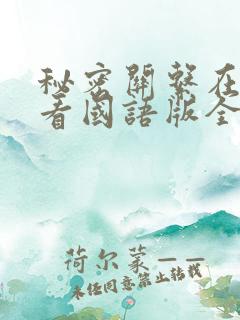 秘密關繫在
看國語版全
荷尔蒙——
未经同意禁止转载